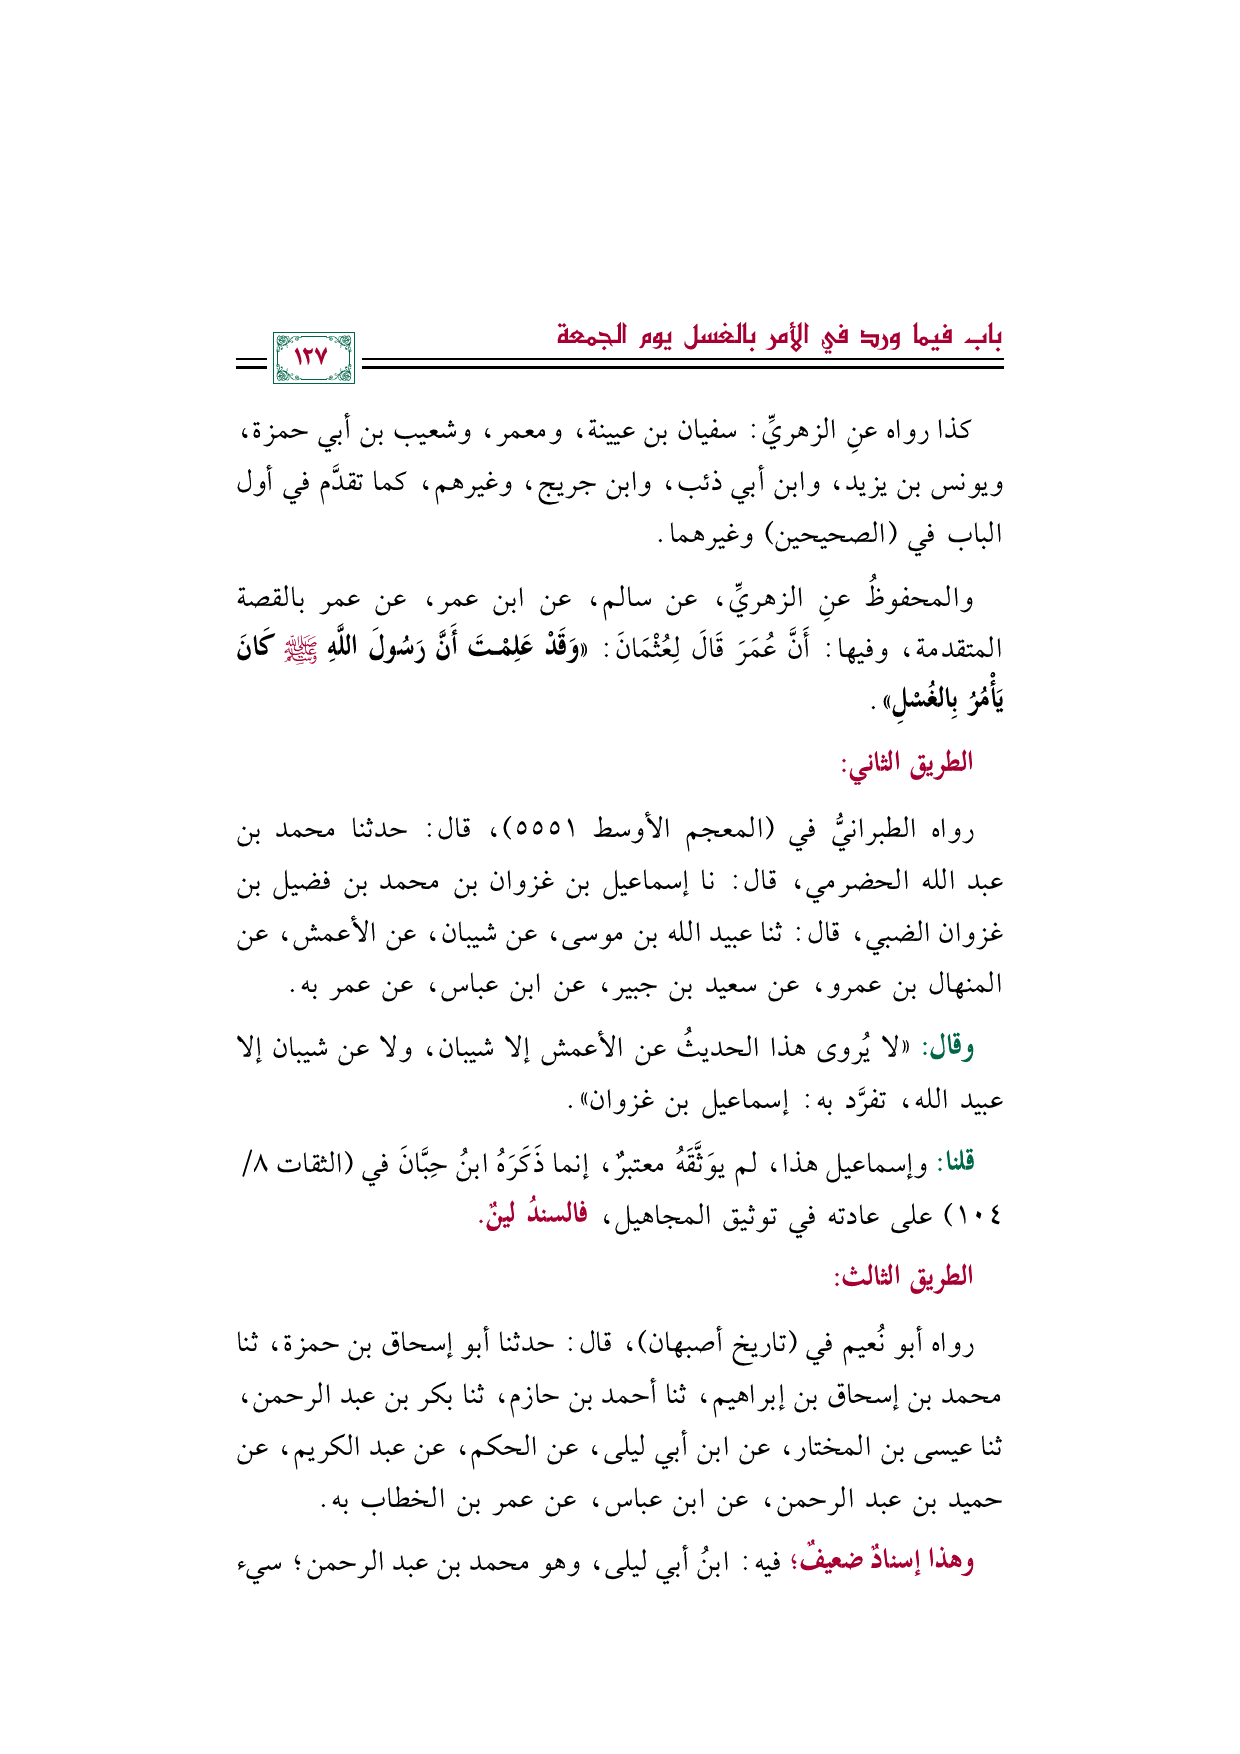 باب فيما ورد في الأمر بالغسل يوم الجمعة
١٢٧
كذا رواه عنِ الزهريِّ: سفيان بن عيينة، ومعمر، وشعيب بن أبي حمزة،
ويونس بن يزيد، وابن أبي ذئب، وابن جريج، وغيرهم، كما تقدَّم في أول
الباب في (الصحيحين) وغيرهما.
والمحفوظُ عنِ الزهريِّ، عن سالم، عن ابن عمر، عن عمر بالقصة
المتقدمة، وفيها: أَنَّ عُمَرَ قَالَ لِعُثْمَانَ: «وَقَدْ عَلِمْتَ أَنَّ رَسُولَ اللَّهِ ﷺ كَانَ
يَأْمُرُ بِالغُسْلِ».
الطريق الثاني:
رواه الطبرانيُّ في (المعجم الأوسط ٥٥٥١)، قال: حدثنا محمد بن
عبد الله الحضرمي، قال: نا إسماعيل بن غزوان بن محمد بن فضيل بن
غزوان الضبي، قال: ثنا عبيد الله بن موسى، عن شيبان، عن الأعمش، عن
المنهال بن عمرو، عن سعيد بن جبير، عن ابن عباس، عن عمر به.
وقال: «لا يُروى هذا الحديثُ عن الأعمش إلا شيبان، ولا عن شيبان إلا
عبيد الله، تفرَّد به: إسماعيل بن غزوان».
قلنا: وإسماعيل هذا، لم يوَثَّقَهُ معتبرٌ، إنما ذَكَرَهُ ابنُ حِبَّانَ في (الثقات ٨/
١٠٤) على عادته في توثيق المجاهيل، فالسندُ لينٌ.
الطريق الثالث:
رواه أبو نُعيم في (تاريخ أصبهان)، قال: حدثنا أبو إسحاق بن حمزة، ثنا
محمد بن إسحاق بن إبراهيم، ثنا أحمد بن حازم، ثنا بكر بن عبد الرحمن،
ثنا عيسى بن المختار، عن ابن أبي ليلى، عن الحكم، عن عبد الكريم، عن
حميد بن عبد الرحمن، عن ابن عباس، عن عمر بن الخطاب به.
وهذا إسنادٌ ضعيفٌ؛ فيه: ابنُ أبي ليلى، وهو محمد بن عبد الرحمن؛ سيء